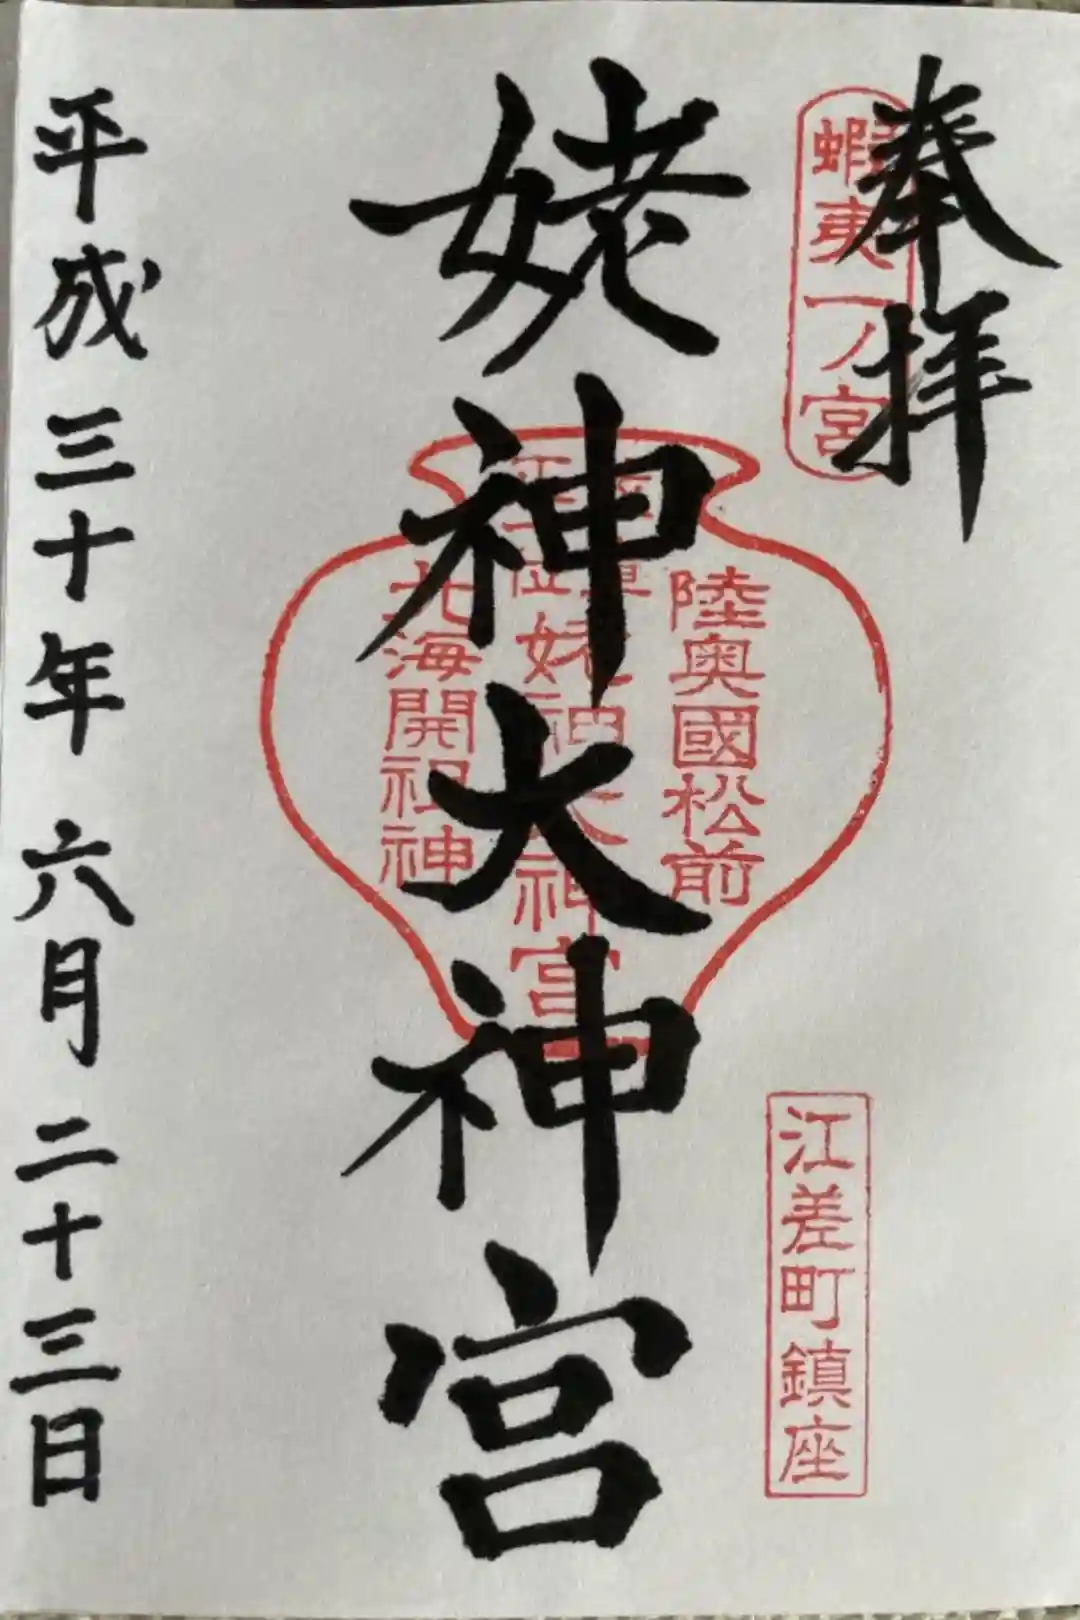 奉拝
蝦夷一ノ宮
江差町鎮座
姥神大神宮
陸奥國松前
正一位姥神大神宮
北海開祖神
平成三十年六月二十三日